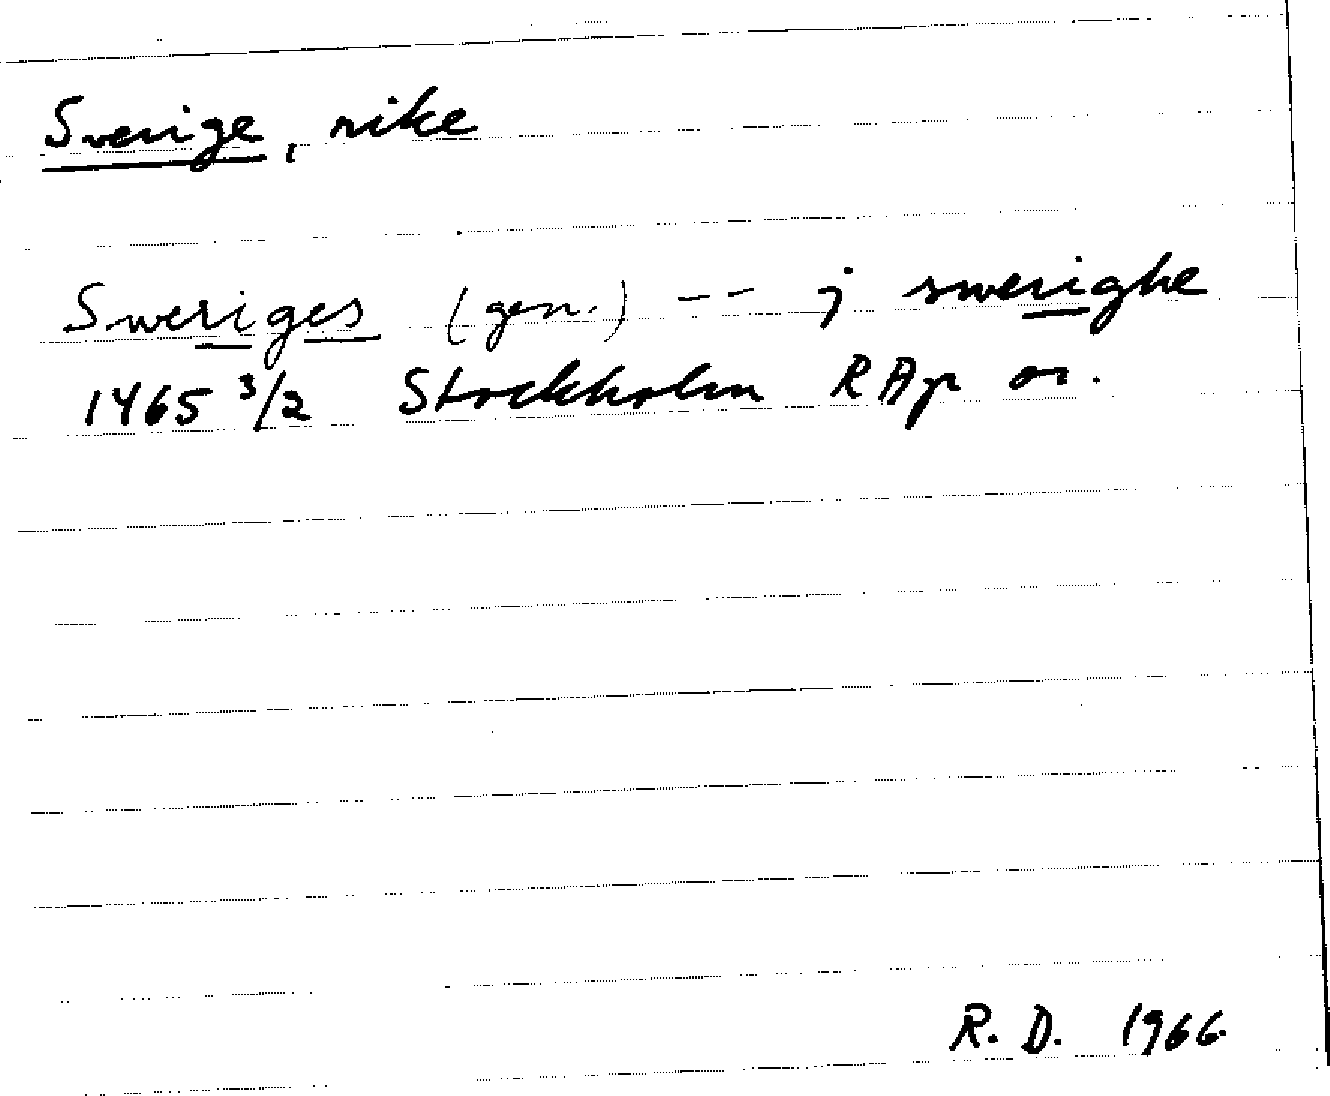 Sverige, rike
Sweriges (gen.) -- j swerighe
1465 3/2 Stockholm RAp or.
R. D. 1966